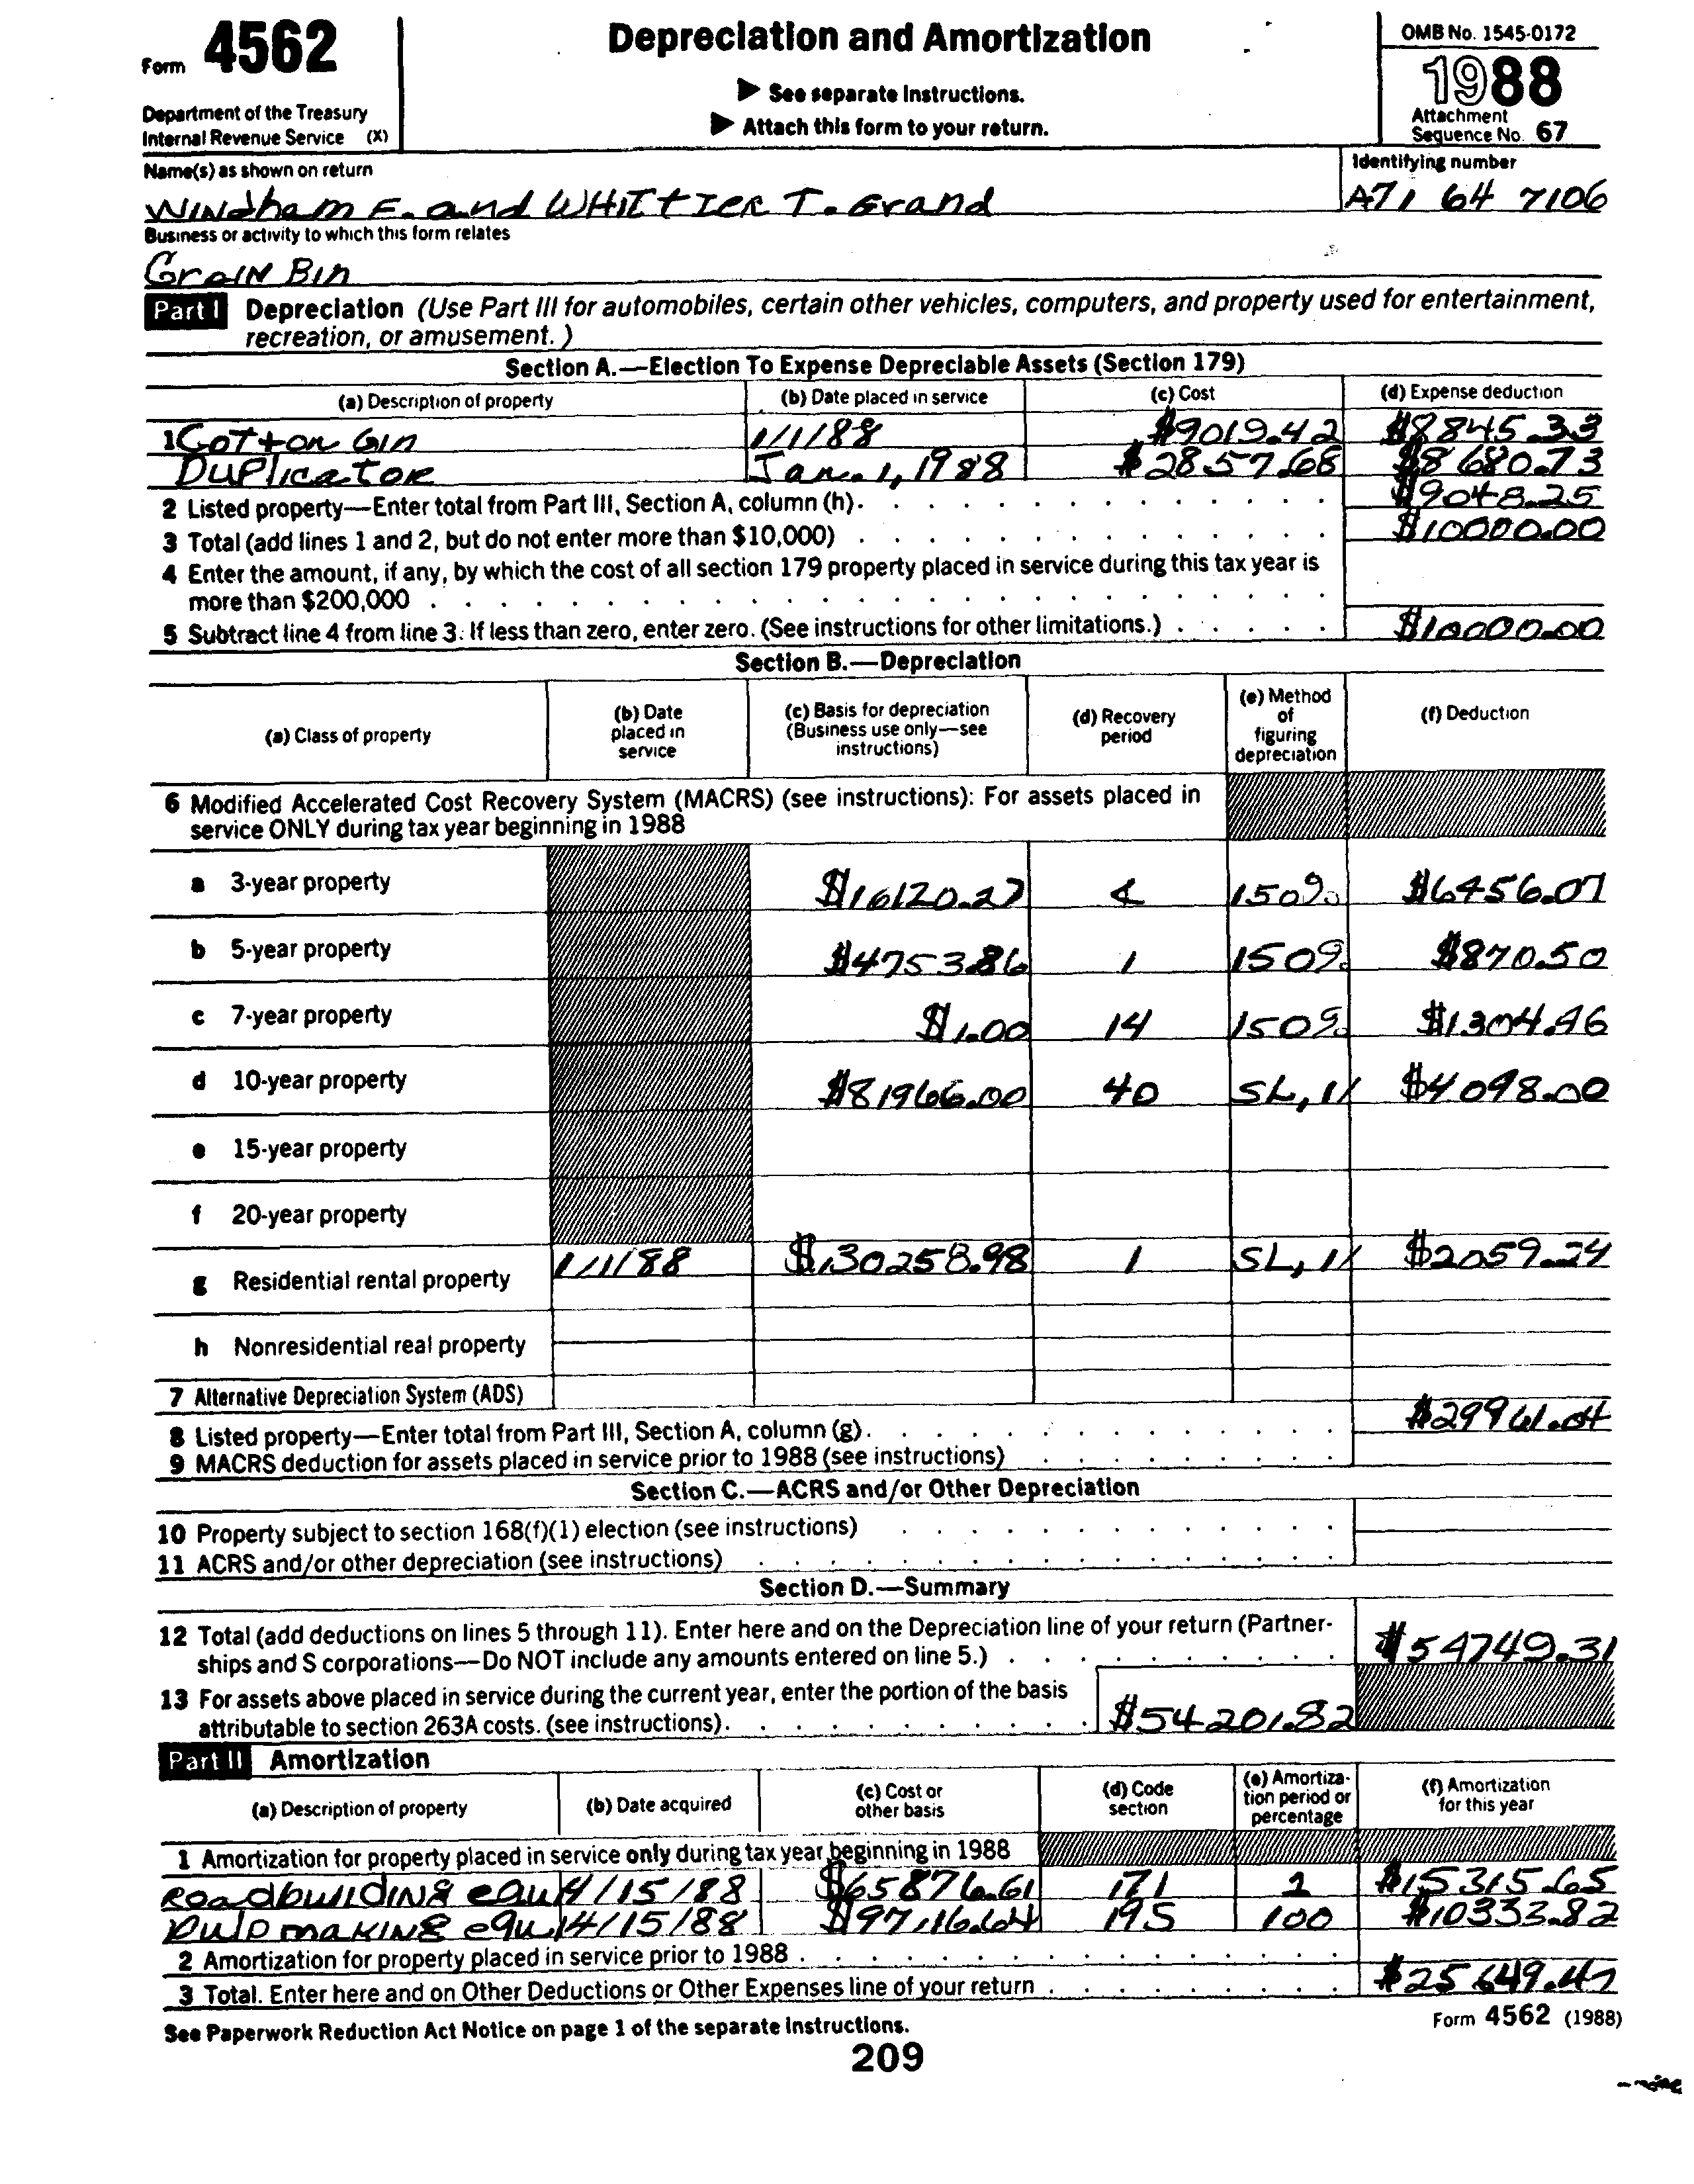 Form 4562
Department of the Treasury
Internal Revenue Service (X)
Depreciation and Amortization
▶ See separate Instructions.
▶ Attach this form to your return.
OMB No. 1545-0172
1988
Attachment
Sequence No. 67
Name(s) as shown on return
Identifying number
Windham F. and WHITtIER T. Grand
A71 64 7106
Business or activity to which this form relates
Grain Bin
Part I Depreciation (Use Part III for automobiles, certain other vehicles, computers, and property used for entertainment,
recreation, or amusement.)
Section A.—Election To Expense Depreciable Assets (Section 179)
(a) Description of property (b) Date placed in service (c) Cost (d) Expense deduction
1 Cotton Gin 1/1/88 $9019.42 $8845.33
Duplicator Jan. 1, 1988 $2857.68 $8680.73
2 Listed property—Enter total from Part III, Section A, column (h). $9048.25
3 Total (add lines 1 and 2, but do not enter more than $10,000) $10000.00
4 Enter the amount, if any, by which the cost of all section 179 property placed in service during this tax year is
more than $200,000
5 Subtract line 4 from line 3. If less than zero, enter zero. (See instructions for other limitations.) $10000.00
Section B.—Depreciation
(a) Class of property
(b) Date
placed in
service
(c) Basis for depreciation
(Business use only—see
instructions)
(d) Recovery
period
(e) Method
of
figuring
depreciation
(f) Deduction
6 Modified Accelerated Cost Recovery System (MACRS) (see instructions): For assets placed in
service ONLY during tax year beginning in 1988
a 3-year property $16120.27 150% $6456.07
b 5-year property $4753.86 1 150% $870.50
c 7-year property $1.00 14 150% $1304.46
d 10-year property $81966.00 40 SL, 11 $4098.00
e 15-year property
f 20-year property
g Residential rental property 1/1/88 $130258.98 1 SL, 11 $2059.24
h Nonresidential real property
7 Alternative Depreciation System (ADS)
8 Listed property—Enter total from Part III, Section A, column (g). $29961.04
9 MACRS deduction for assets placed in service prior to 1988 (see instructions)
Section C.—ACRS and/or Other Depreciation
10 Property subject to section 168(f)(1) election (see instructions)
11 ACRS and/or other depreciation (see instructions)
Section D.—Summary
12 Total (add deductions on lines 5 through 11). Enter here and on the Depreciation line of your return (Partner-
ships and S corporations—Do NOT include any amounts entered on line 5.) $54749.31
13 For assets above placed in service during the current year, enter the portion of the basis
attributable to section 263A costs. (see instructions). $54201.82
Part II Amortization
(a) Description of property
(b) Date acquired
(c) Cost or
other basis
(d) Code
section
(e) Amortiza-
tion period or
percentage
(f) Amortization
for this year
1 Amortization for property placed in service only during tax year beginning in 1988
Roadbuilding equ 4/15/88 $65876.61 171 2 $15315.65
Pulp making equ 4/15/88 $97116.64 195 100 $10333.82
2 Amortization for property placed in service prior to 1988
3 Total. Enter here and on Other Deductions or Other Expenses line of your return $25649.47
See Paperwork Reduction Act Notice on page 1 of the separate Instructions.
Form 4562 (1988)
209